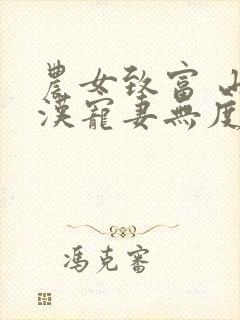 農女致富 山
漢寵妻無度
馮克審